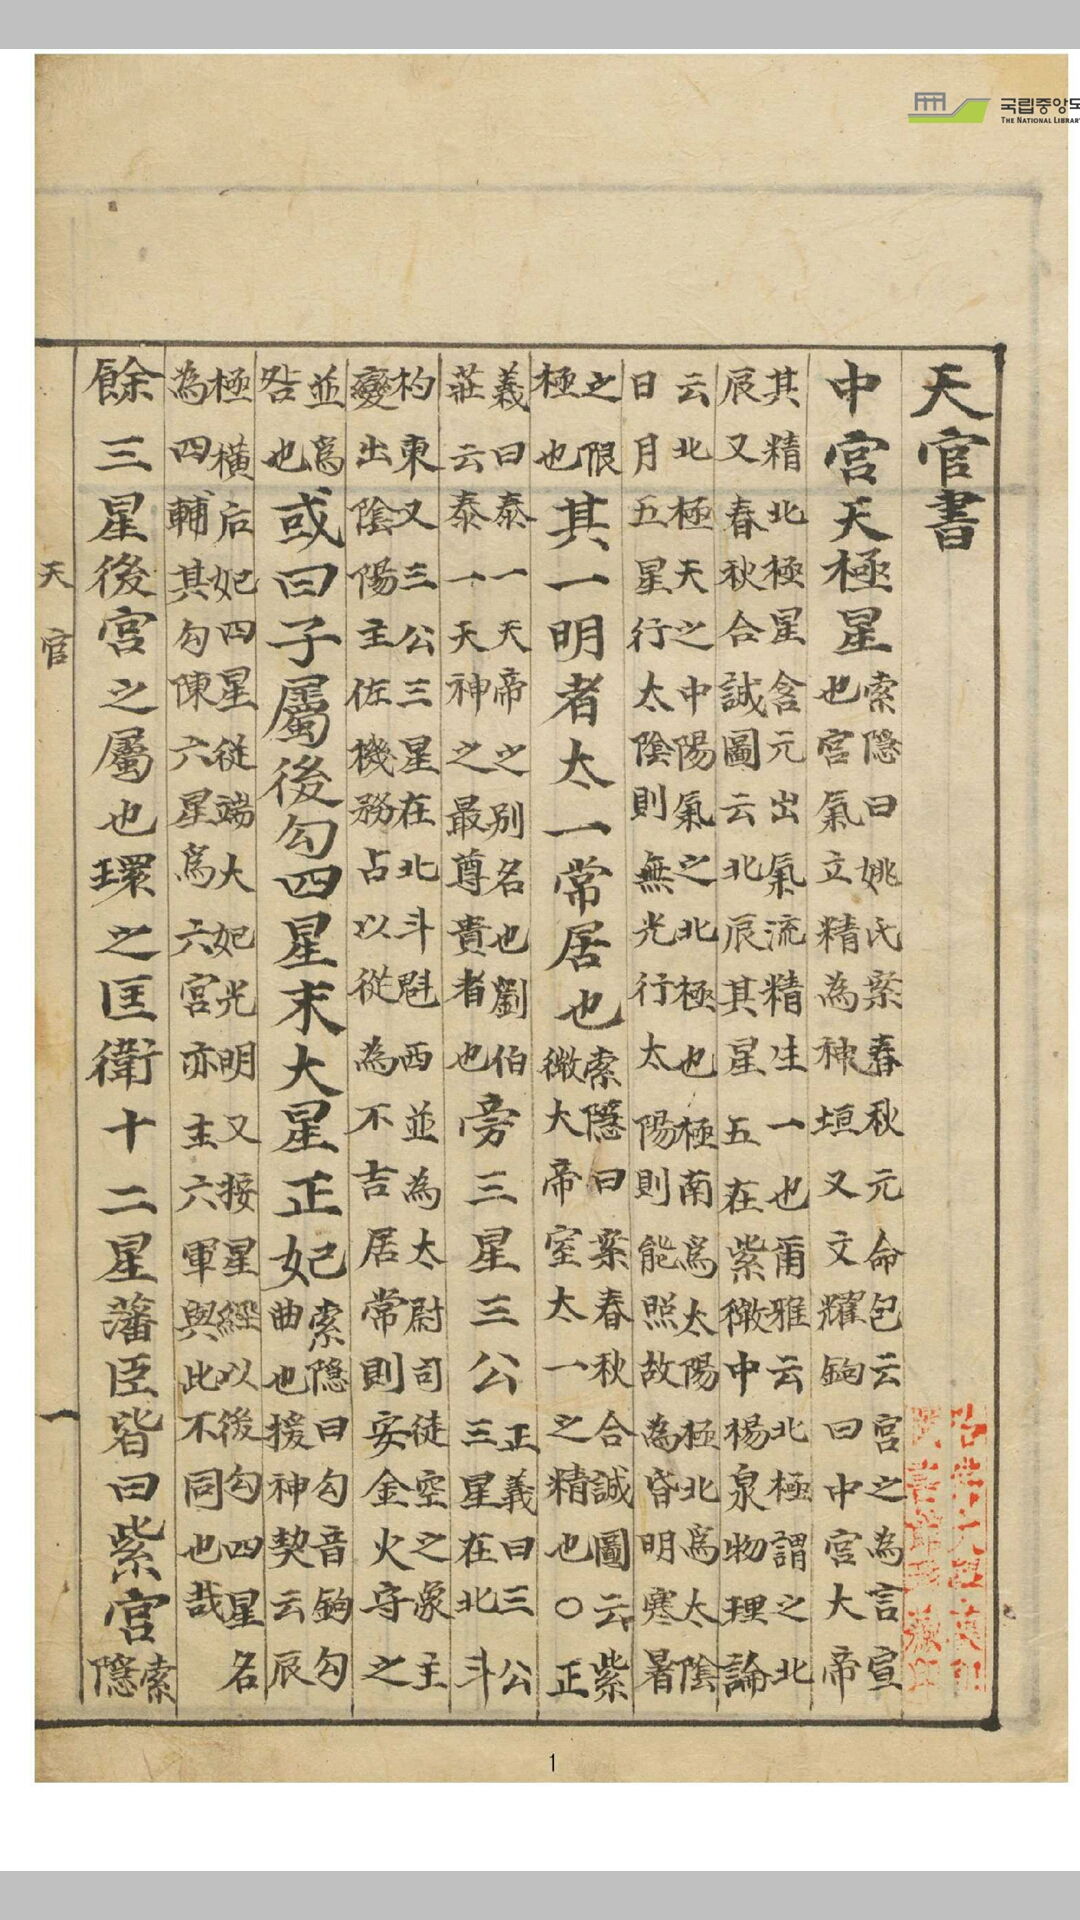 국립중앙도
THE NATIONAL LIBRAR
天官書
中宮天極星
索隱曰姚氏案春秋元命包云宮之為言宣
也宮氣立精為神垣又文耀鉤曰中宮大帝
其精北極星含元出氣流精生一也爾雅云北極謂之北
辰又春秋合誠圖云北辰其星五在紫微中楊泉物理論
云北極天之中陽氣之北極也極南爲太陽極北爲太陰
日月五星行太陰則無光行太陽則能照故為昏明寒暑
之限
極也
其一明者太一常居也
索隱曰案春秋合誠圖云紫
微大帝室太一之精也○正
義曰泰一天帝之别名也劉伯
莊云泰一天神之最尊貴者也
旁三星三公
正義曰三公
三星在北斗
杓東又三公三星在北斗魁西並為太尉司徒空之象主
變出陰陽主佐機務占以從為不吉居常則安金火守之
並爲
咎也
或曰子屬後勾四星末大星正妃
索隱曰勾音鉤勾
曲也援神契云辰
極橫后妃四星従端大妃光明又接星經以後勾四星名
為四輔其勾陳六星爲六宮亦主六軍與此不同也哉
餘三星後宮之屬也環之匡衛十二星藩臣皆曰紫宮
索
隱
天官
一
1